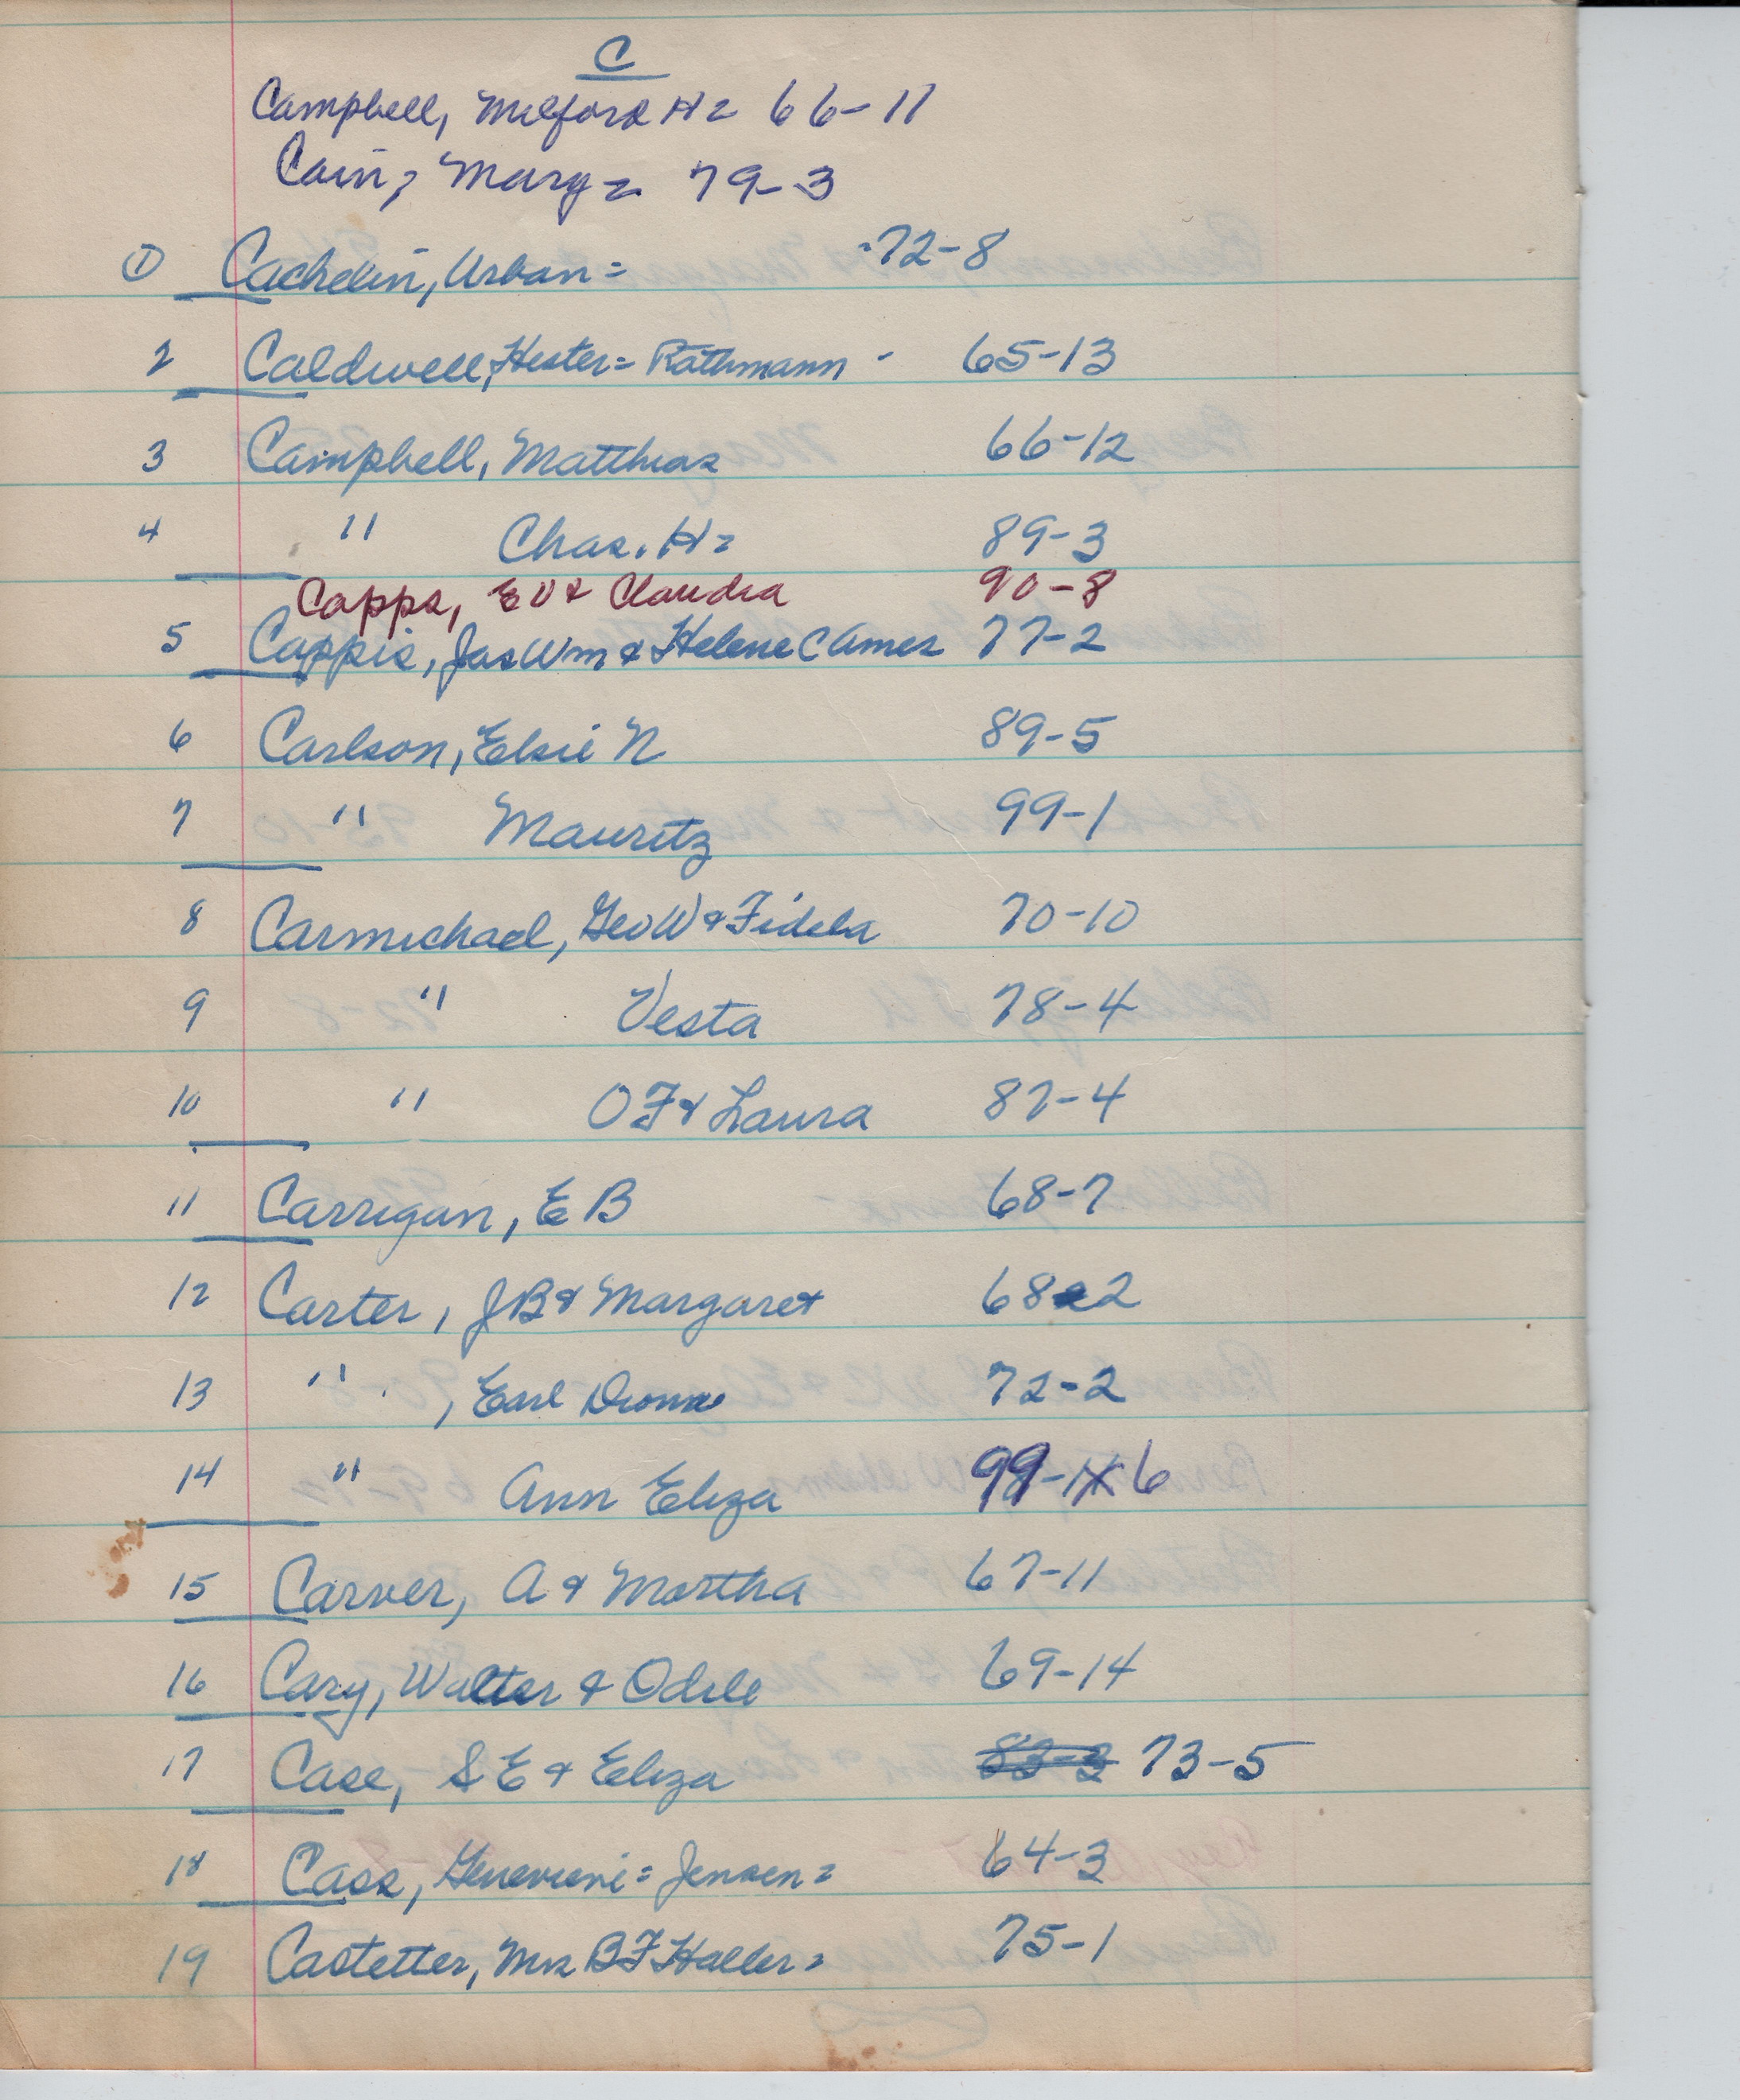 C
Campbell, Milford H = 66-11
Cain, Mary = 79-3
① Cachelin, Urban = 72-8
2 Caldwell, Hester = Rathmann - 65-13
3 Campbell, Matthias 66-12
4 " Chas. H = 89-3
Capps, E V & Claudia 90-8
5 Cappis, Jas Wm & Helene C Ames 77-2
6 Carlson, Elsie N 89-5
7 " Mauritz 99-1
8 Carmichael, Geo W & Fidela 70-10
9 " Vesta 78-4
10 " O F & Laura 87-4
11 Carrigan, E B 68-7
12 Carter, J B & Margaret 68-2
13 " , Earl 72-2
14 " Ann Eliza 99-1X 6
15 Carver, A & Martha 67-11
16 Cary, Walter & Odile 69-14
17 Case, S E & Eliza 83-3 73-5
18 Cass, Genevieve = Jensen = 64-3
19 Castetter, Mrs B F Haller = 75-1